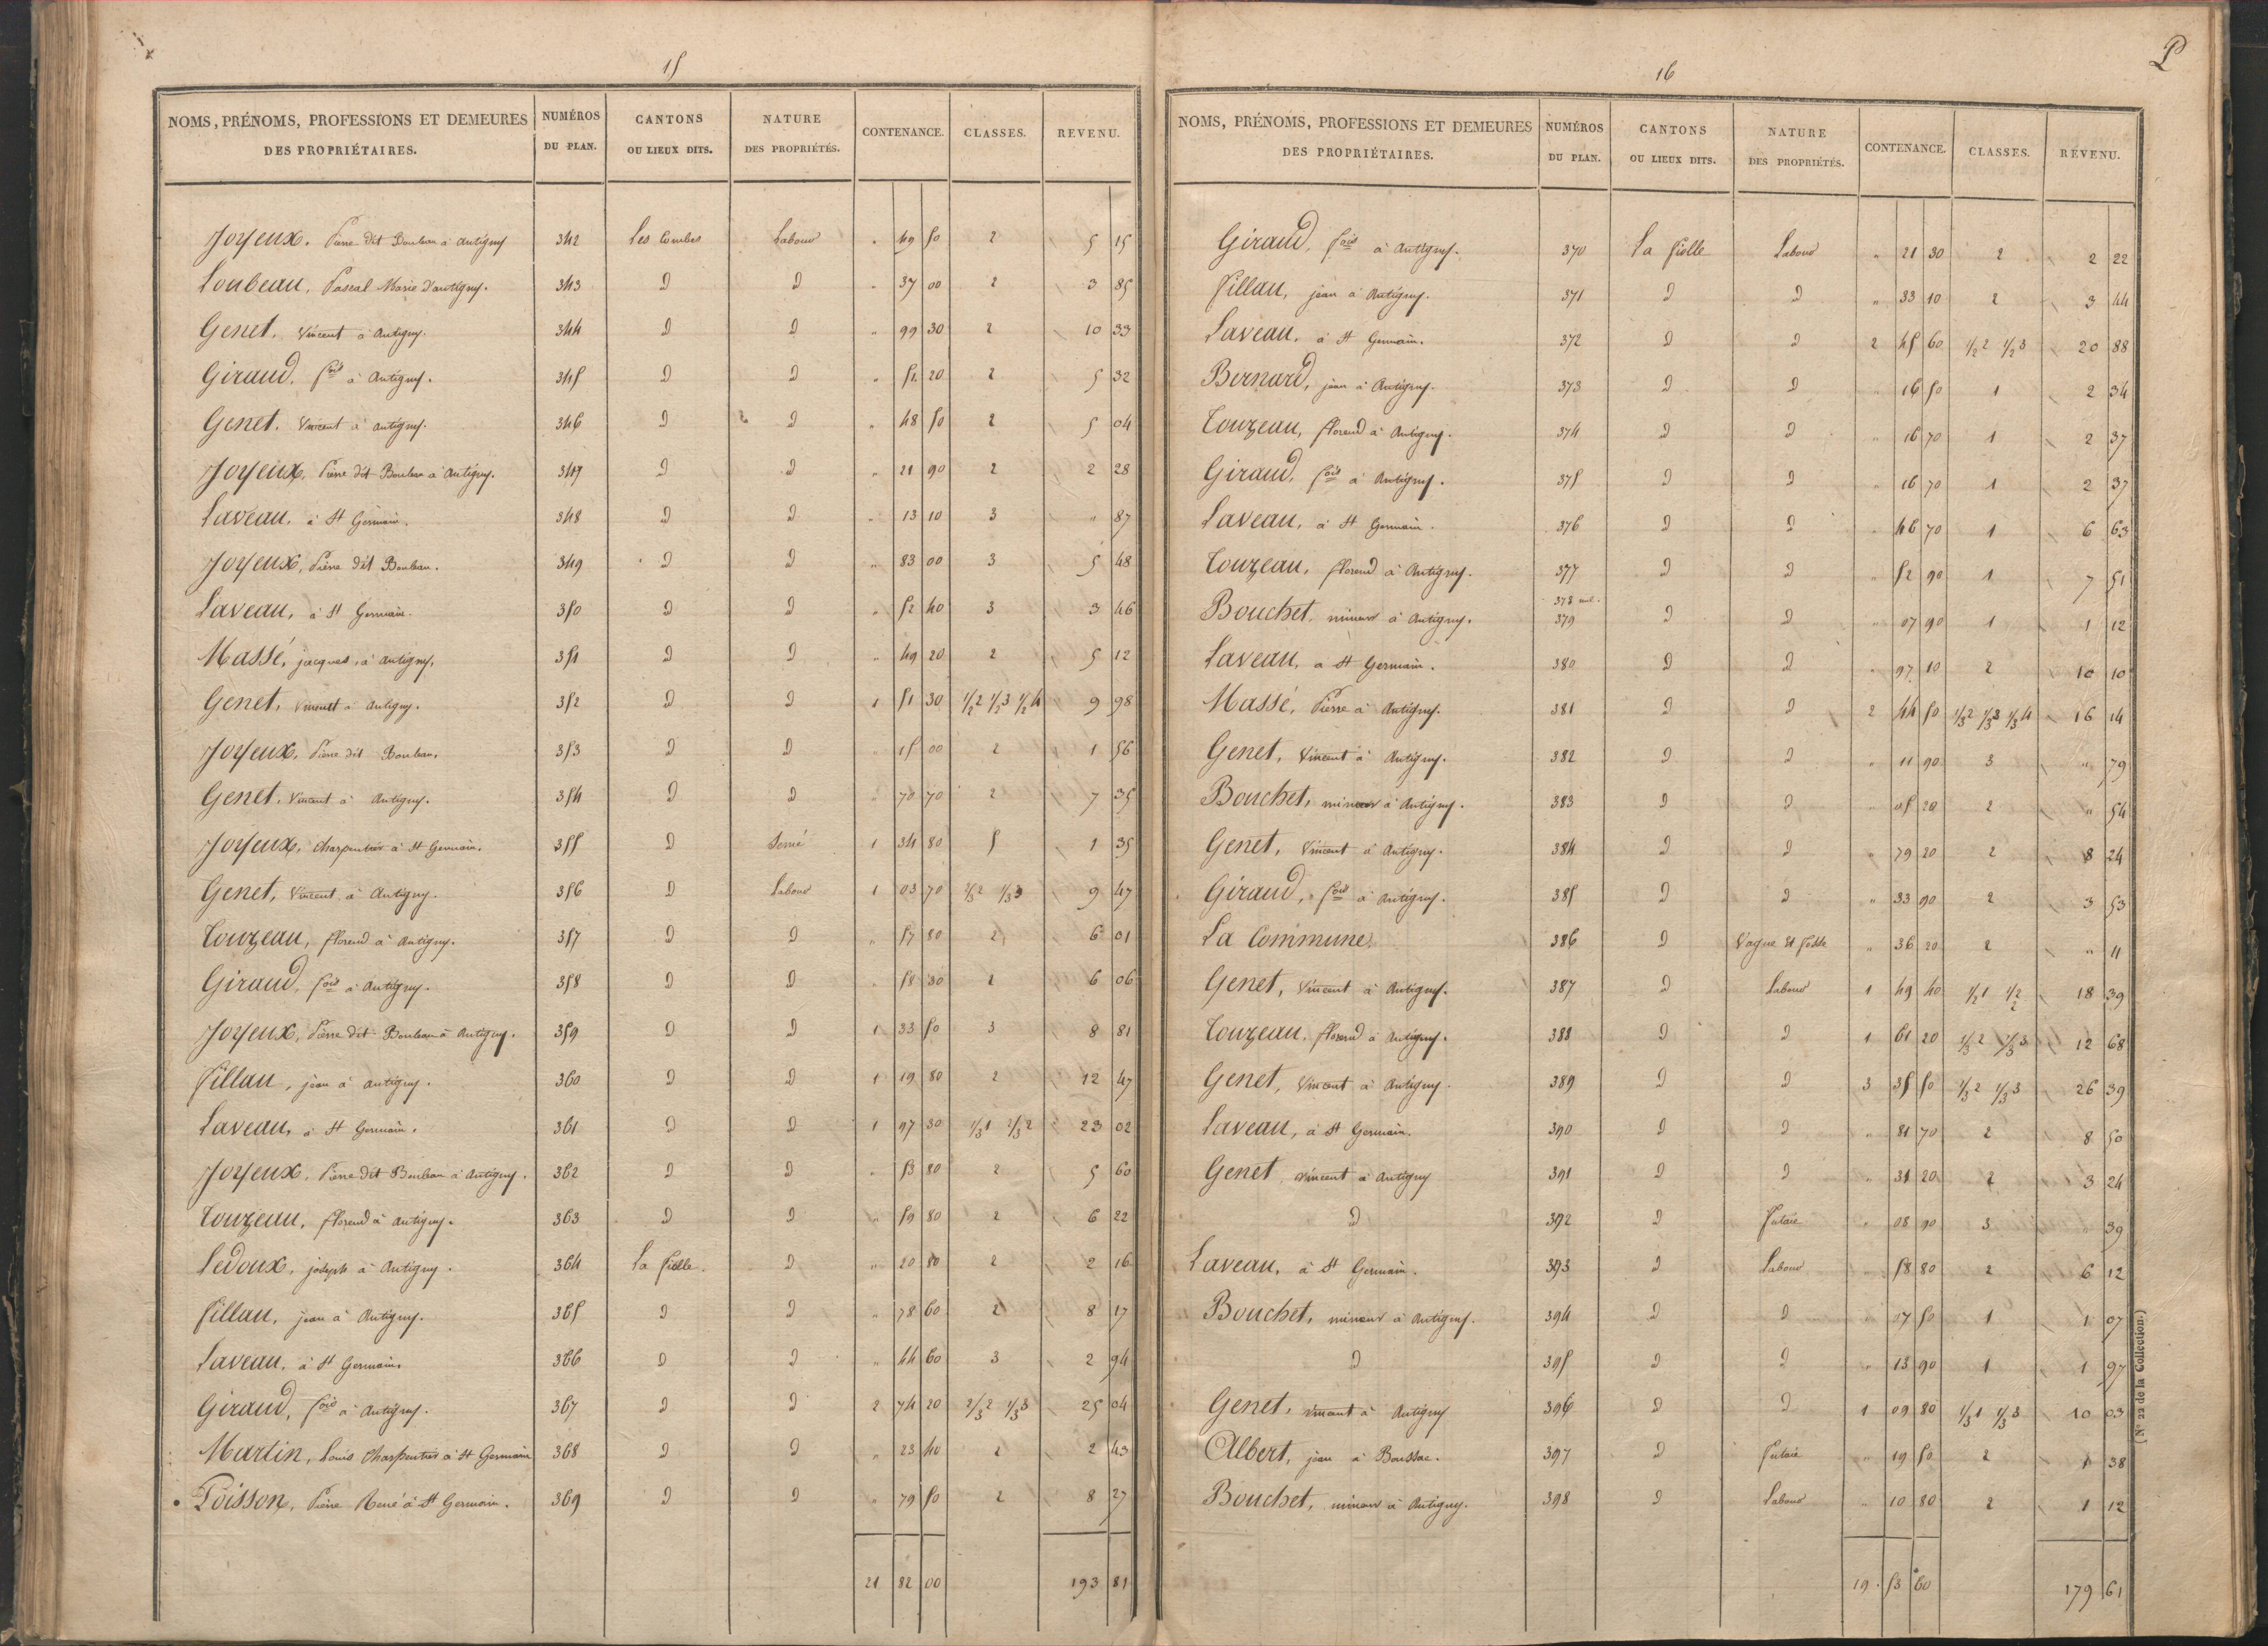 15
NOMS, PRÉNOMS, PROFESSIONS ET DEMEURES DES PROPRIÉTAIRES. NUMÉROS DU PLAN. CANTONS OU LIEUX DITS. NATURE DES PROPRIÉTÉS. CONTENANCE. CLASSES. REVENU.
Joyeux. Pierre dit Bouleau à Antigny 342 Les Combes Labour " 49 50 2 5 15
Loubeau, Pascal Marie d'antigny. 343 D D " 37 00 2 3 85
Genet, Vincent à Antigny. 344 D D " 99 30 2 10 33
Giraud, fois à Antigny. 345 D D " 51 20 2 5 32
Genet, Vincent à antigny. 346 D D " 48 50 2 5 04
Joyeux, Pierre dit Bouleau à Antigny. 347 D D " 21 90 2 2 28
Laveau, à St Germain. 348 D D " 13 10 3 " 87
Joyeux, Pierre dit Bouleau. 349 D D " 83 00 3 5 48
Laveau, à St Germain. 350 D D " 52 40 3 3 46
Massé, jacques, à antigny, 351 D D " 49 20 2 5 12
Genet, Vincent à antigny. 352 D D 1 51 30 1/2 2 1/2 3 1/2 4 9 98
Joyeux, Pierre dit Bouleau. 353 D D " 15 00 2 1 56
Genet, Vincent à Antigny. 354 D D " 70 70 2 7 35
Joyeux, charpentier à St Germain. 355 D Semé 1 34 80 5 1 35
Genet, Vincent à Antigny. 356 D Labour 1 03 70 2/3 2 1/3 3 9 47
Touzeau, florend à Antigny. 357 D D " 57 80 2 6 01
Giraud, fois à Antigny. 358 D D " 58 30 2 6 06
Joyeux, Pierre dit Bouleau à Antigny. 359 D D 1 33 50 3 8 81
Fillau, jean à antigny. 360 D D 1 19 80 2 12 47
Laveau, à St Germain. 361 D D 1 97 30 1/3 1 2/3 2 23 02
Joyeux, Pierre dit Bouleau à Antigny. 362 D D " 53 80 2 5 60
Touzeau, florend à antigny. 363 D D " 59 80 2 6 22
Ledoux, joseph à Antigny. 364 La fiolle. D " 20 80 2 2 16
Fillau, jean à Antigny. 365 D D " 78 60 2 8 17
Laveau, à St Germain. 366 D D " 44 60 3 2 94
Giraud, fois à Antigny. 367 D D 2 74 20 2/3 2 1/3 3 25 04
Martin, Louis Charpentier à St Germain 368 D D " 23 40 2 2 43
Poisson, Pierre René à St Germain. 369 D D " 79 50 2 8 27
21 82 00 193 81
P
16
NOMS, PRÉNOMS, PROFESSIONS ET DEMEURES DES PROPRIÉTAIRES. NUMÉROS DU PLAN. CANTONS OU LIEUX DITS. NATURE DES PROPRIÉTÉS. CONTENANCE. CLASSES. REVENU.
Giraud, fois à Antigny. 370 La fiolle Labour " 21 30 2 2 22
Fillau, jean à Antigny. 371 D D " 33 10 2 3 44
Laveau, à St Germain. 372 D D 2 45 60 1/2 2 1/2 3 20 88
Bernard, jean à Antigny. 373 D D " 16 50 1 2 34
Touzeau, florend à Antigny. 374 D D " 16 70 1 2 37
Giraud, fois à Antigny. 375 D D " 16 70 1 2 37
Laveau, à St Germain. 376 D D " 46 70 1 6 63
Touzeau, florend à Antigny. 377 D D " 52 90 1 7 51
Bouchet, mineur à Antigny. 378 379 D D " 07 90 1 1 12
Laveau, à St Germain. 380 D D " 97 10 2 10 10
Massé, Pierre à Antigny. 381 D D 2 44 50 1/3 2 1/3 3 1/3 4 16 14
Genet, Vincent à Antigny. 382 D D " 11 90 3 " 79
Bouchet, mineur à Antigny. 383 D D " 05 20 2 " 54
Genet, Vincent à Antigny. 384 D D " 79 20 2 8 24
Giraud, fois à Antigny. 385 D D " 33 90 2 3 53
La Commune. 386 D Vague et " 36 20 2 " 11
Genet, Vincent à Antigny. 387 D Labour 1 49 40 1/2 1 1/2 2 18 39
Touzeau, florend à Antigny. 388 D D 1 61 20 1/3 2 1/3 3 12 68
Genet, Vincent à Antigny. 389 D D 3 35 50 1/3 2 1/3 3 26 39
Laveau, à St Germain. 390 D D " 81 70 2 8 50
Genet Vincent à Antigny 391 D D " 31 20 2 3 24
D 392 D Futaie " 08 90 3 " 39
Laveau, à St Germain. 393 D Labour " 58 80 2 6 12
Bouchet, mineur à Antigny. 394 D D " 07 50 1 1 07
D 395 D D " 13 90 1 1 97
Genet, Vincent à Antigny 396 D D 1 09 80 1/3 1 1/3 3 10 03
Albert, jean à Boussac. 397 D Futaie " 19 50 2 1 38
Bouchet, mineur à Antigny. 398 D Labour " 10 80 2 1 12
19 53 60 179 61
(N° 22 de la Collection.)